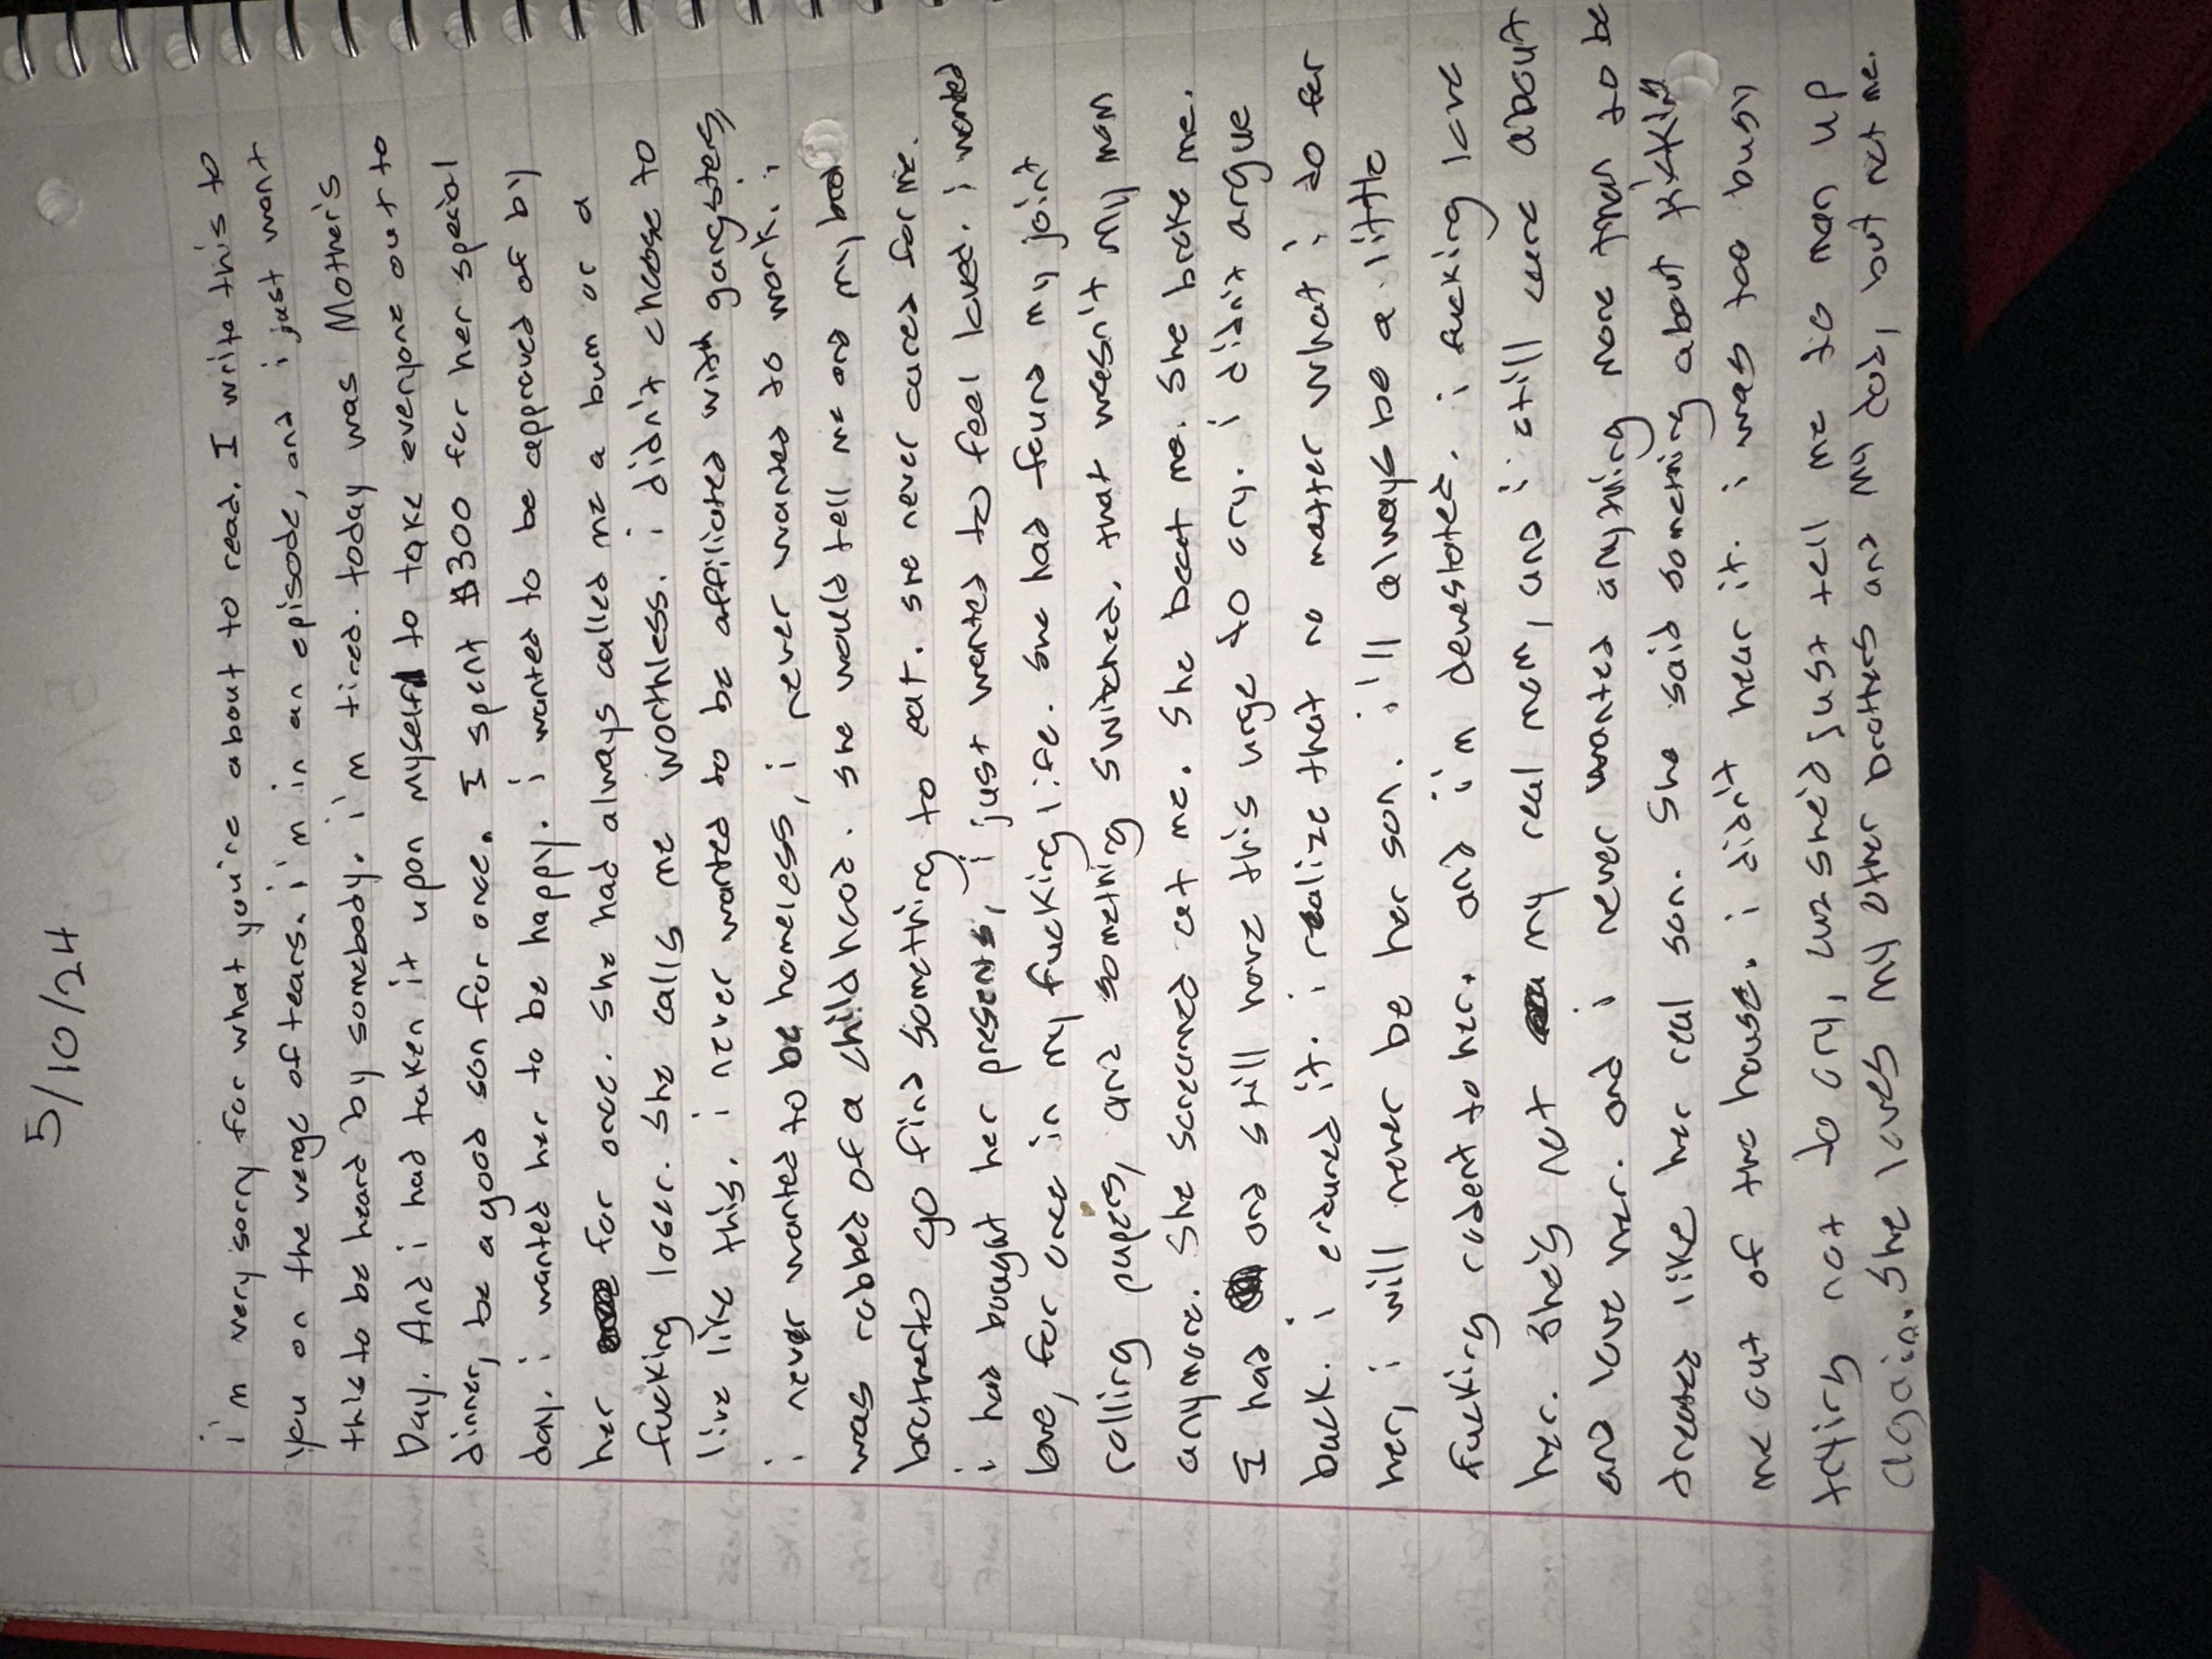 5/10/24
i'm very sorry for what you're about to read. I write this to
you on the verge of tears. i'm in an episode, and i just want
this to be heard by somebody. i'm tired. today was Mother's
Day. And i had taken it upon myself to take everyone out to
dinner, be a good son for once. I spent $300 for her special
day. i wanted her to be happy. i wanted to be approved of by
her for once. She had always called me a bum or a
fucking loser. She calls me worthless. i didn't choose to
live like this. i never wanted to be affiliated with gangsters,
i never wanted to be homeless, i never wanted to work. i
was robbed of a childhood. she would tell me and my
brother to go find something to eat. she never cared for me.
i had bought her presents, i just wanted to feel loved. i wanted
love, for once in my fucking life. She had found my joint
rolling papers, and something switched. that wasn't my mom
anymore. She screamed at me. She beat me. She broke me.
I had and still have this urge to cry. i didn't argue
back. i endured it. i realize that no matter what i do for
her, i will never be her son. i'll always be a little
fucking rodent to her. and i'm devestated. i fucking love
her. She's not my real mom, and i still care about
and love her. and i never wanted anything more than to be
treated like her real son. She said something about kicking
me out of the house. i didn't hear it. i was too busy
trying not to cry, cuz she'd just tell me to man up
again. She loves my other brothers and my dad, but not me.